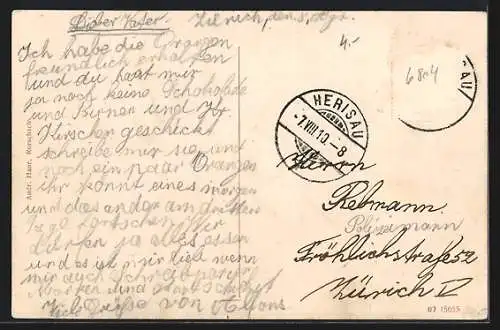 Lieber Vater
Zürich, den 5. Agr.
4.-
Ich habe die Orangen
freundlich erhalten
und du hast mir
ja noch keine Schokolade
und Birnen und Ihr
Kirschen geschickt
schreibe mir sie und
noch ein paar Orangen
Ihr könnt eines morgen
und das ander am dritten
Tag fortschicken
dürfen ja alles essen
und es ist mir lieb wenn
mir auch Schreibpapier
Marken und
Viele Grüße von Alfons
HERISAU
-7.VIII.10.-8
6804
AU
Herrn
Rebmann
Polizeimann
Fröhlichstraße 52
Zürich V
Andr. Hane, Rorschach
07 15055